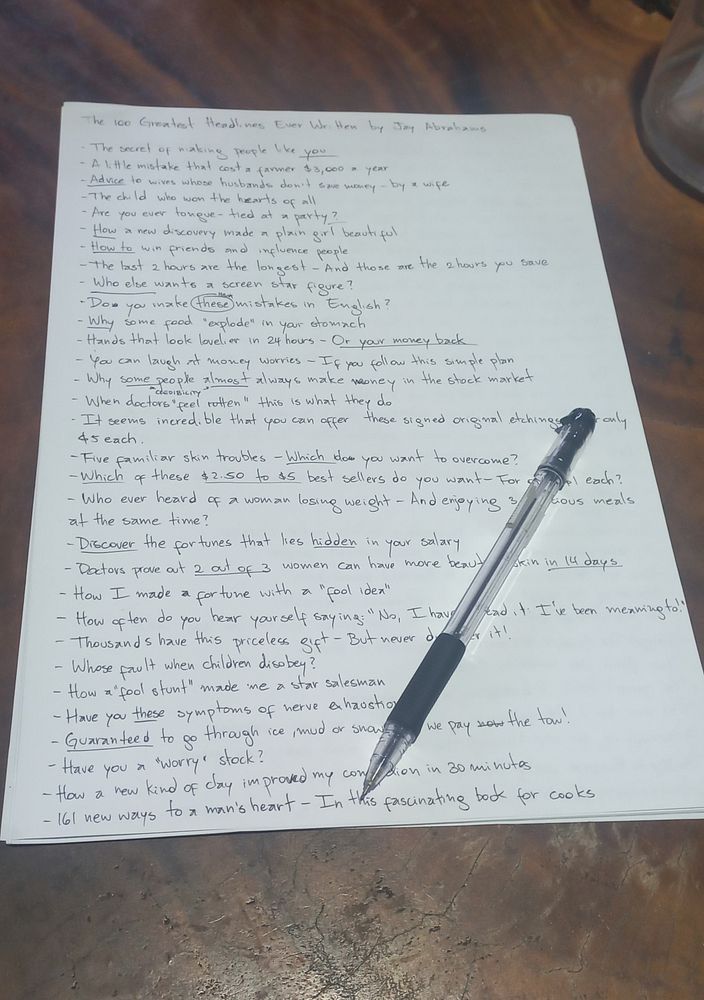 The 100 Greatest Headlines Ever Written by Jay Abrahams
- The secret of making people like you
- A little mistake that cost a farmer $3,000 a year
- Advice to wives whose husbands don't save money - by a wife
- The child who won the hearts of all
- Are you ever tongue-tied at a party?
- How a new discovery made a plain girl beautiful
- How to win friends and influence people
- The last 2 hours are the longest - And those are the 2 hours you save
- Who else wants a screen star figure?
- Do you make these mistakes in English?
- Why some food "explode" in your stomach
- Hands that look lovelier in 24 hours - Or your money back
- You can laugh at money worries - If you follow this simple plan
- Why some people almost always make money in the stock market
- When doctors "feel rotten" this is what they do
- It seems incredible that you can offer these signed original etchings only
$5 each.
- Five familiar skin troubles - Which do you want to overcome?
- Which of these $2.50 to $5 best sellers do you want - For each?
- Who ever heard of a woman losing weight - And enjoying 3 meals
at the same time?
- Discover the fortunes that lies hidden in your salary
- Doctors prove out 2 out of 3 women can have more skin in 14 days
- How I made a fortune with a "fool idea"
- How often do you hear yourself saying: "No, I have it: I've been meaning to!"
- Thousands have this priceless gift - But never it!
- Whose fault when children disobey?
- How a "fool stunt" made me a star salesman
- Have you these symptoms of nerve exhaustion
- Guaranteed to go through ice, mud or snow we pay the tow!
- Have you a "worry" stock?
- How a new kind of clay improved my in 30 minutes
- 161 new ways to a man's heart - In this fascinating book for cooks